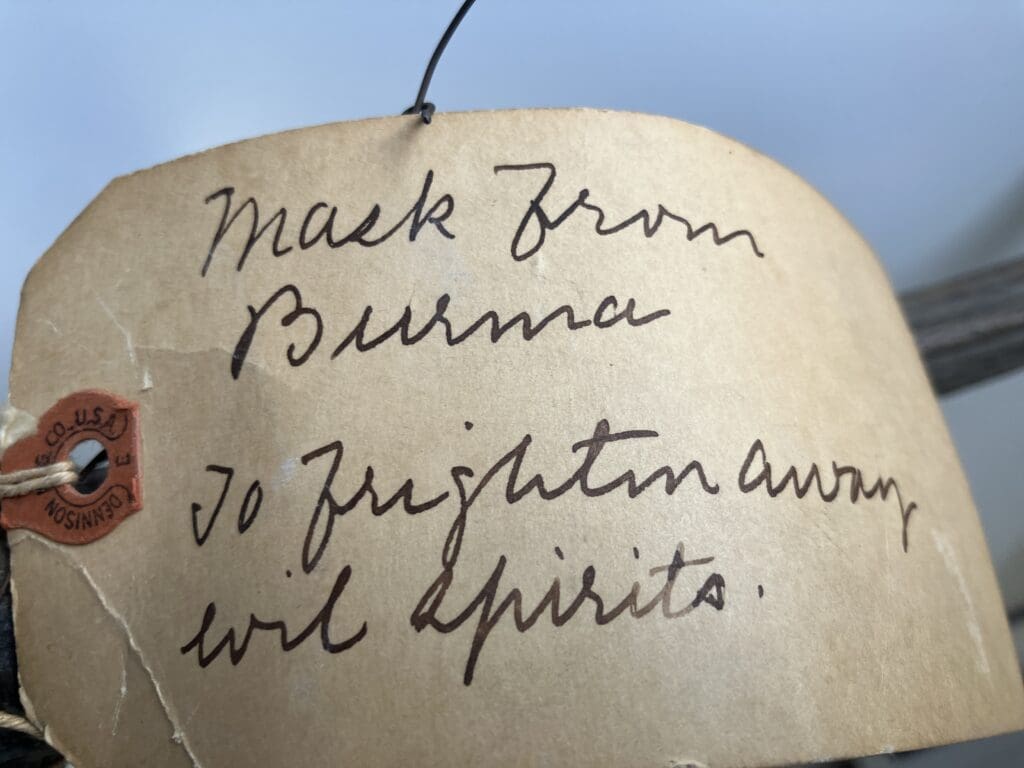 Mask From
Burma
To Frighten away
evil spirits.
G. CO. U.S.A
E
DENNISON